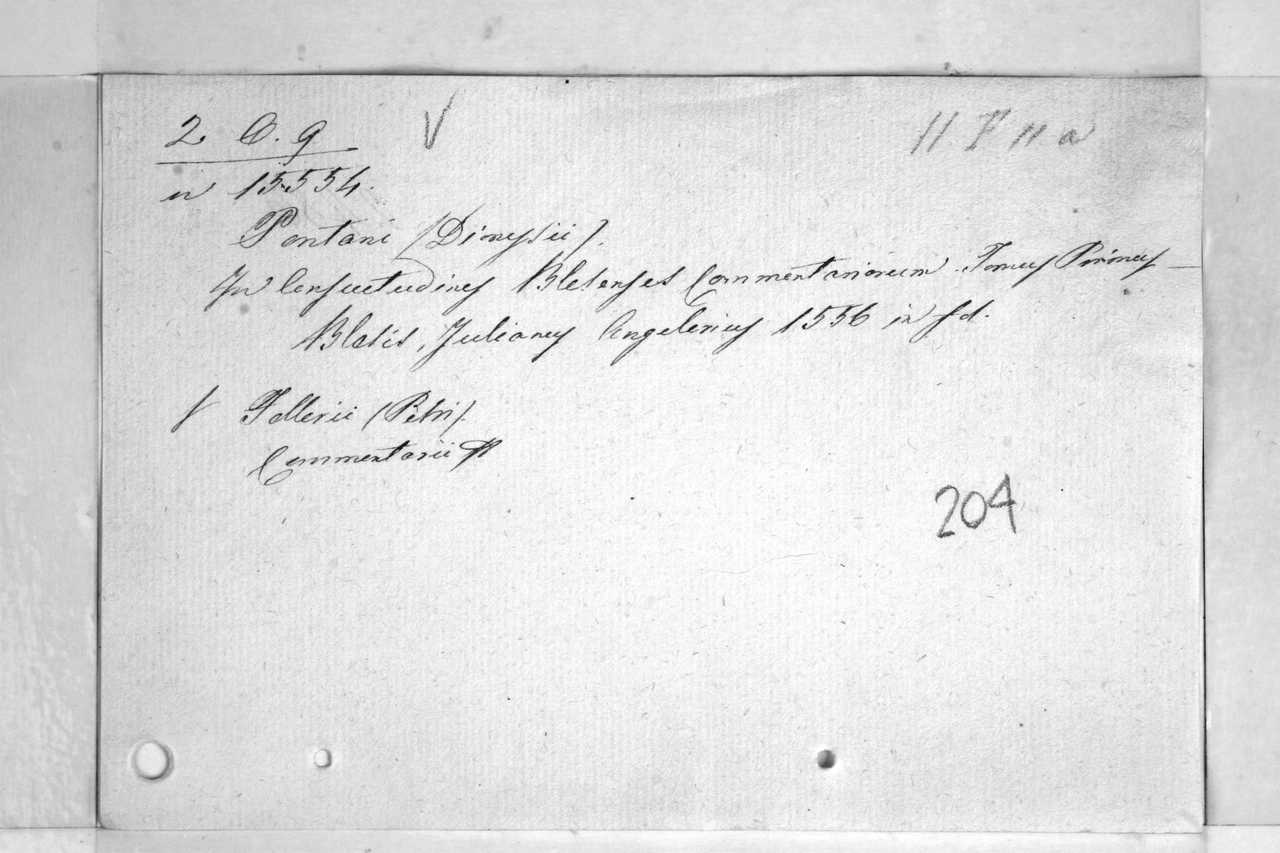 2 O. 9
V
H F 11 a
n 15554.
Pontani (Dionysii).
In Consuetudines Blesenses Commentariorum Tomus Primus —
Blesis, Julianus Angelerius 1556 in fol.
f Fallerii (Petri).
Commentarii
204